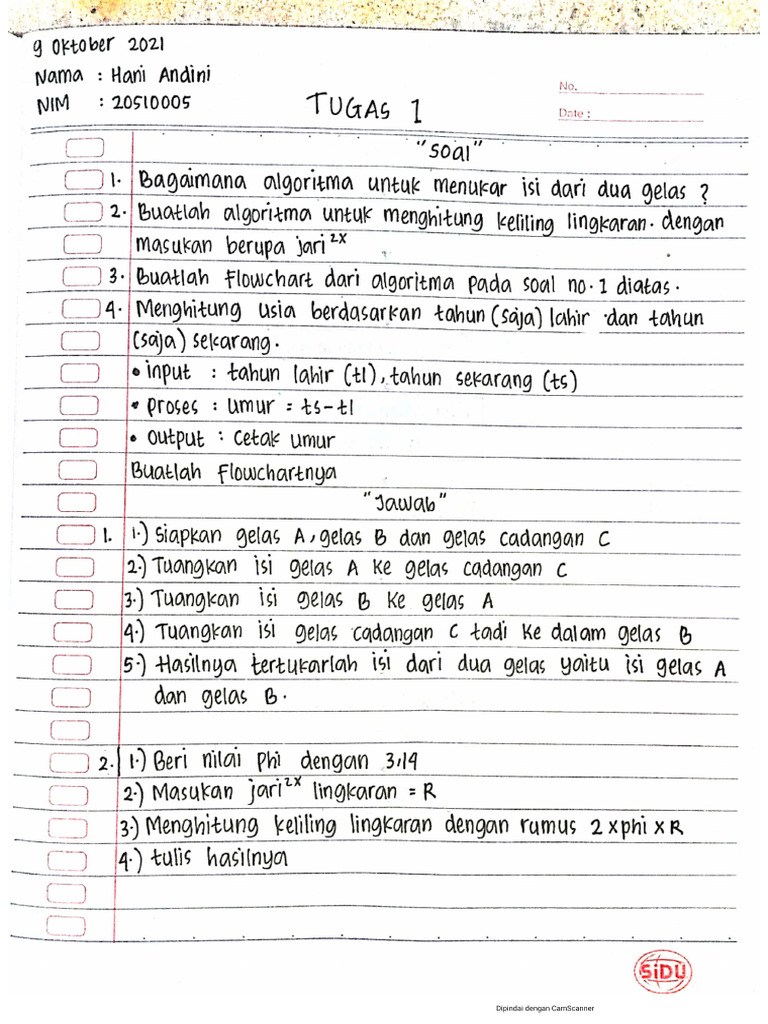 9 Oktober 2021
Nama : Hani Andini
NIM : 20510005
TUGAS 1
No.
Date :
"Soal"
1. Bagaimana algoritma untuk menukar isi dari dua gelas ?
2. Buatlah algoritma untuk menghitung keliling lingkaran. dengan
masukan berupa jari²ˣ
3. Buatlah Flowchart dari algoritma pada soal no.1 diatas.
4. Menghitung usia berdasarkan tahun (saja) lahir dan tahun
(saja) sekarang.
• input : tahun lahir (tl), tahun sekarang (ts)
• proses : umur = ts-tl
• output : cetak umur
Buatlah Flowchartnya
"Jawab"
1. 1.) Siapkan gelas A, gelas B dan gelas cadangan C
2.) Tuangkan isi gelas A ke gelas cadangan C
3.) Tuangkan isi gelas B ke gelas A
4.) Tuangkan isi gelas cadangan C tadi ke dalam gelas B
5.) Hasilnya tertukarlah isi dari dua gelas yaitu isi gelas A
dan gelas B.
2. 1.) Beri nilai phi dengan 3,14
2.) Masukan jari²ˣ lingkaran = R
3.) Menghitung keliling lingkaran dengan rumus 2 x phi x R
4.) tulis hasilnya
SiDU
Dipindai dengan CamScanner